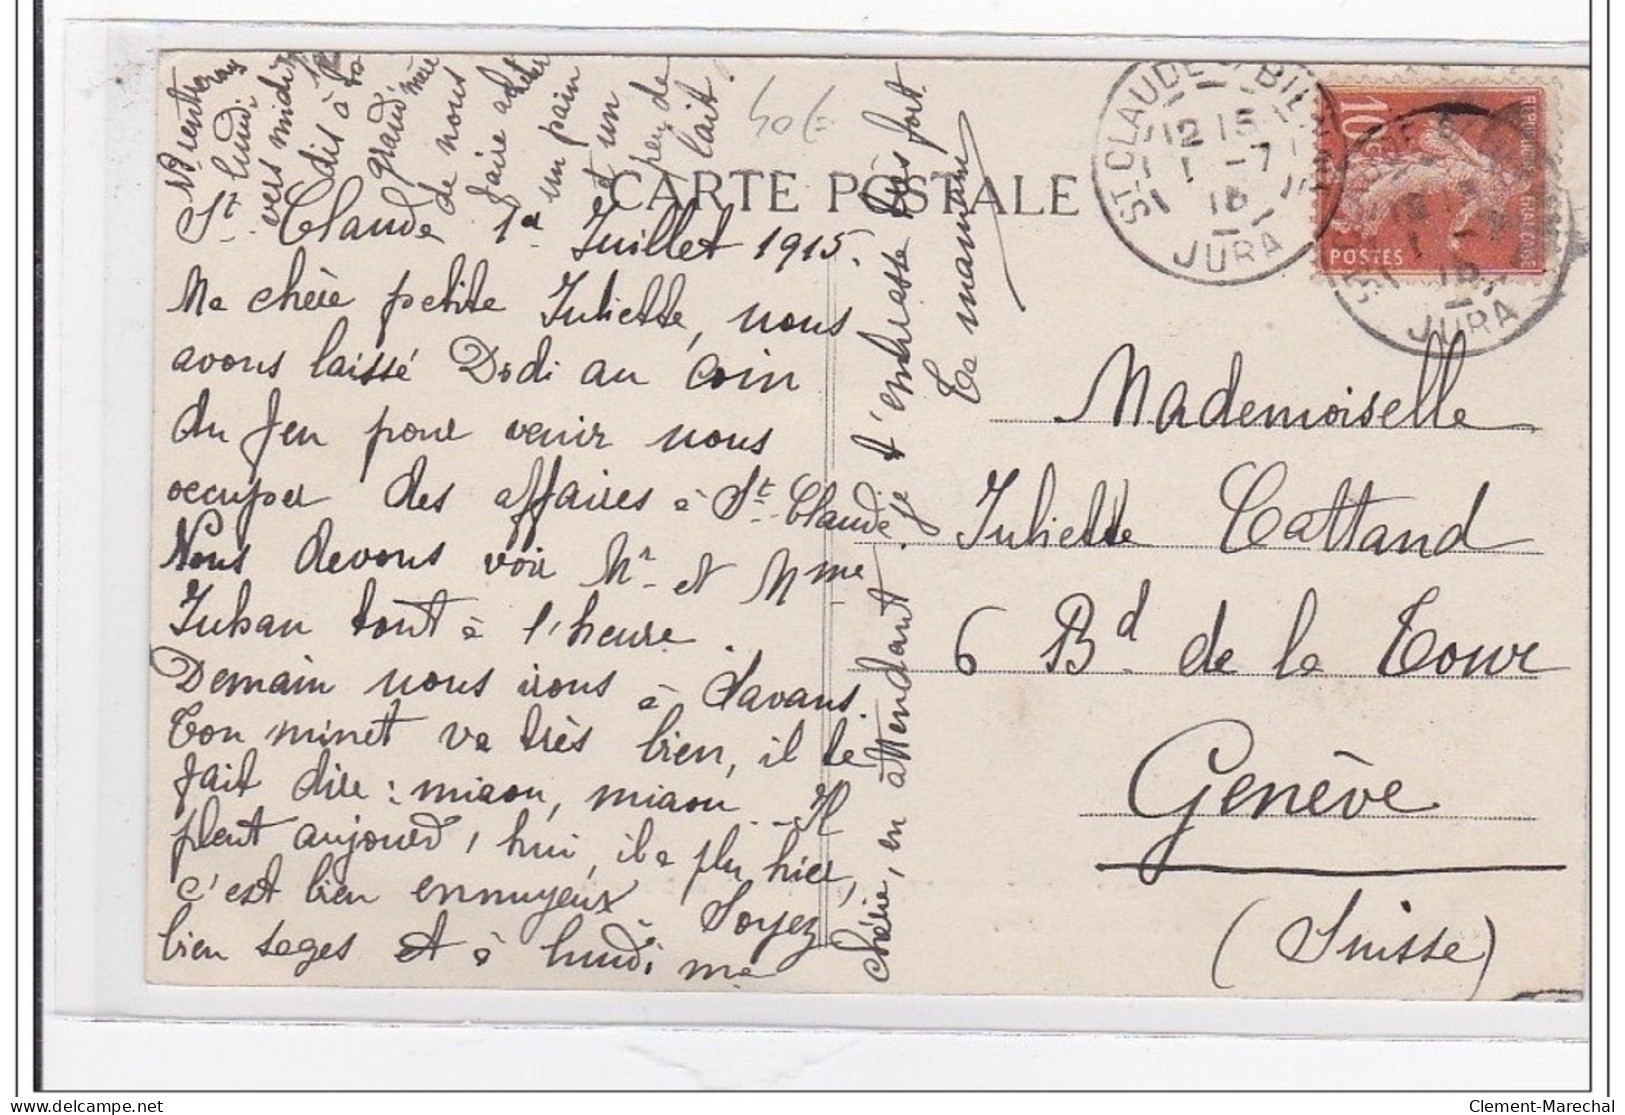 rentrerons
lundi
vers midi
dis à ta
grand'mère
de nous
faire acheter
un pain
et un
peu de
lait.
CARTE POSTALE
St. Claude 1er Juillet 1915.
Ma chère petite Juliette, nous
avons laissé Dodi au coin
du feu pour venir nous
occuper des affaires à St. Claude.
Nous devons voir Mr. et Mme
Juhan tout à l'heure.
Demain nous irons à Lavans.
Ton minet va très bien, il te
fait dire : miaou, miaou. Il
pleut aujourd'hui, il a plu hier,
c'est bien ennuyeux. Soyez
bien sages et à lundi ma
chérie, en attendant je t'embrasse très fort.
Ta maman
ST. CLAUDE S BIENNE
12 15
1 -7
15
JURA
10c
POSTES
JURA
Mademoiselle
Juliette Cattand
6 Bd. de la Tour
Genève
(Suisse)
Clement-Marechal